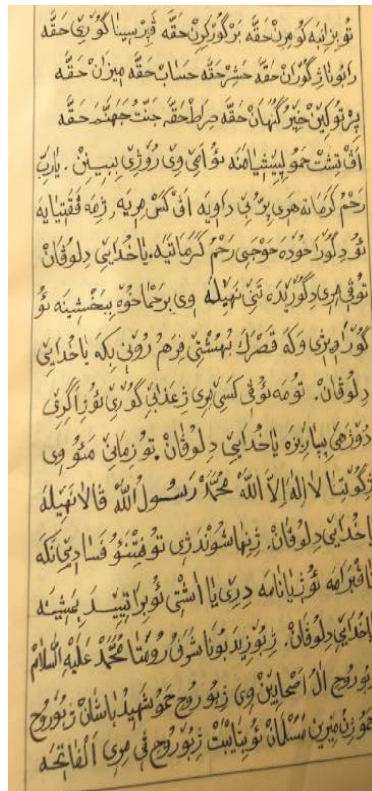 تُو بِزَانِبَه كُو مِرِنْ حَقَّه بَرْ گُورْكِرِنْ حَقَّه قَبِرْ پِسِينَا گُورِي حَقَّه
رَابُونَا ژِ گُورَانْ حَقَّه حَشِرْ حَقَّه حِسَابْ حَقَّه مِيزَانْ حَقَّه
پِرْتُوكِينْ خَيْرُ گُنَهَانْ حَقَّه صِرَاطْ حَقَّه جَنَّتُ جَهَنَّمَ حَقَّه
اَڤْ تِشْتْ حَمُو لِپِيشْيَا مَنَه ئُو اَمِي وِي رُوژِي بِبِينِنْ. يَارَبِّ
رَحْمُ كَرَمَا تَه هَرِي پِرِ فِي دَاوِيَه اَڤْ كَسْ مِرِيَه ژِمَه ڤَقَتْيَايَه
ئُو دِگُورَا خُودَه حَوْجَيِي رَحْمُ كَرَمَا تَيَه. يَاخُدَايِي دِلُوڤَانْ
تُو ڤِي مِرِي دِگُورِيدَه تَنِي نَهِيلَه وِي بَرَحْمَا خُوَه بِبَخْشِينَه ئُو
گُورَا مِرِي وَكَه قَصْرَكَ بُهُشْتِي فِرَهُ رُونِي بِكَه يَاخُدَايِي
دِلُوڤَانْ. تُو مَه ئُو ڤِي كَسِي مِرِي ژِ عَذَابِي گُورِي ئُو ژِ اَگِرِي
دُوژَهِي بِپَارِيزَه يَاخُدَايِي دِلُوڤَانْ. تُو زِمَانِي مَئُو وِي
ژِ گُوتِنَا لَا اِلٰهَ اِلَّا اللّٰهْ مُحَمَّدْ رَسُولُ اللّٰهْ ڤَالَا نَهِيلَه
يَاخُدَايِي دِلُوڤَانْ. ژِنِهَا شُونْدَژِي تُو فِتْنَئُو فَسَادِيِي نَكَه
نَاڤْبَرَا مَه ئُو ژِيَانَا مَه دِرِي يَا اَشْتِي ئُو بِرَاتِيِيدَ بِمَشِينَه
يَاخُدَايِي دِلُوڤَانْ. ژِبُو زِيدَبُونَا شَرَفُ رُومَتَا مُحَمَّدْ عَلَيْهِ السَّلَامْ
ژِبُو رُوحِ اٰلُ اَصْحَابِينْ وِي ژِبُو رُوحِ حَمُو شَهِيدُ بَاشَانْ ژِبُو رُوحِ
حَمُو ژِنُ مِيرِينْ مُسُلْمَانْ ئُو بِتَايْبَتْ ژِبُو رُوحِ ڤِي مِرِي اَلْفَاتِحَه